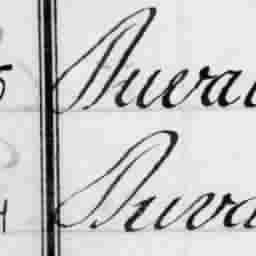 5 Duva
4 Duva